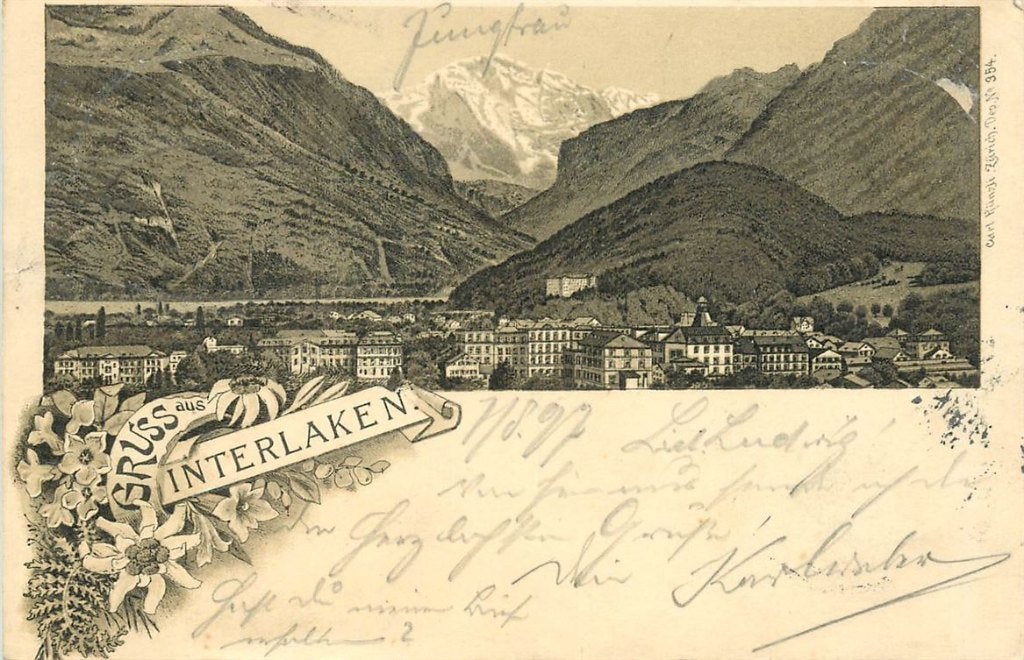 Jungfrau
Carl Künzli, Zürich. Dep. No 354.
GRUSS aus
INTERLAKEN.
1/8.97 Lieb. Ludwig!
Von hier aus sende ich dir
den Herzlichsten Gruss!
Dein Karl
Hast du meinen Brief
erhalten?